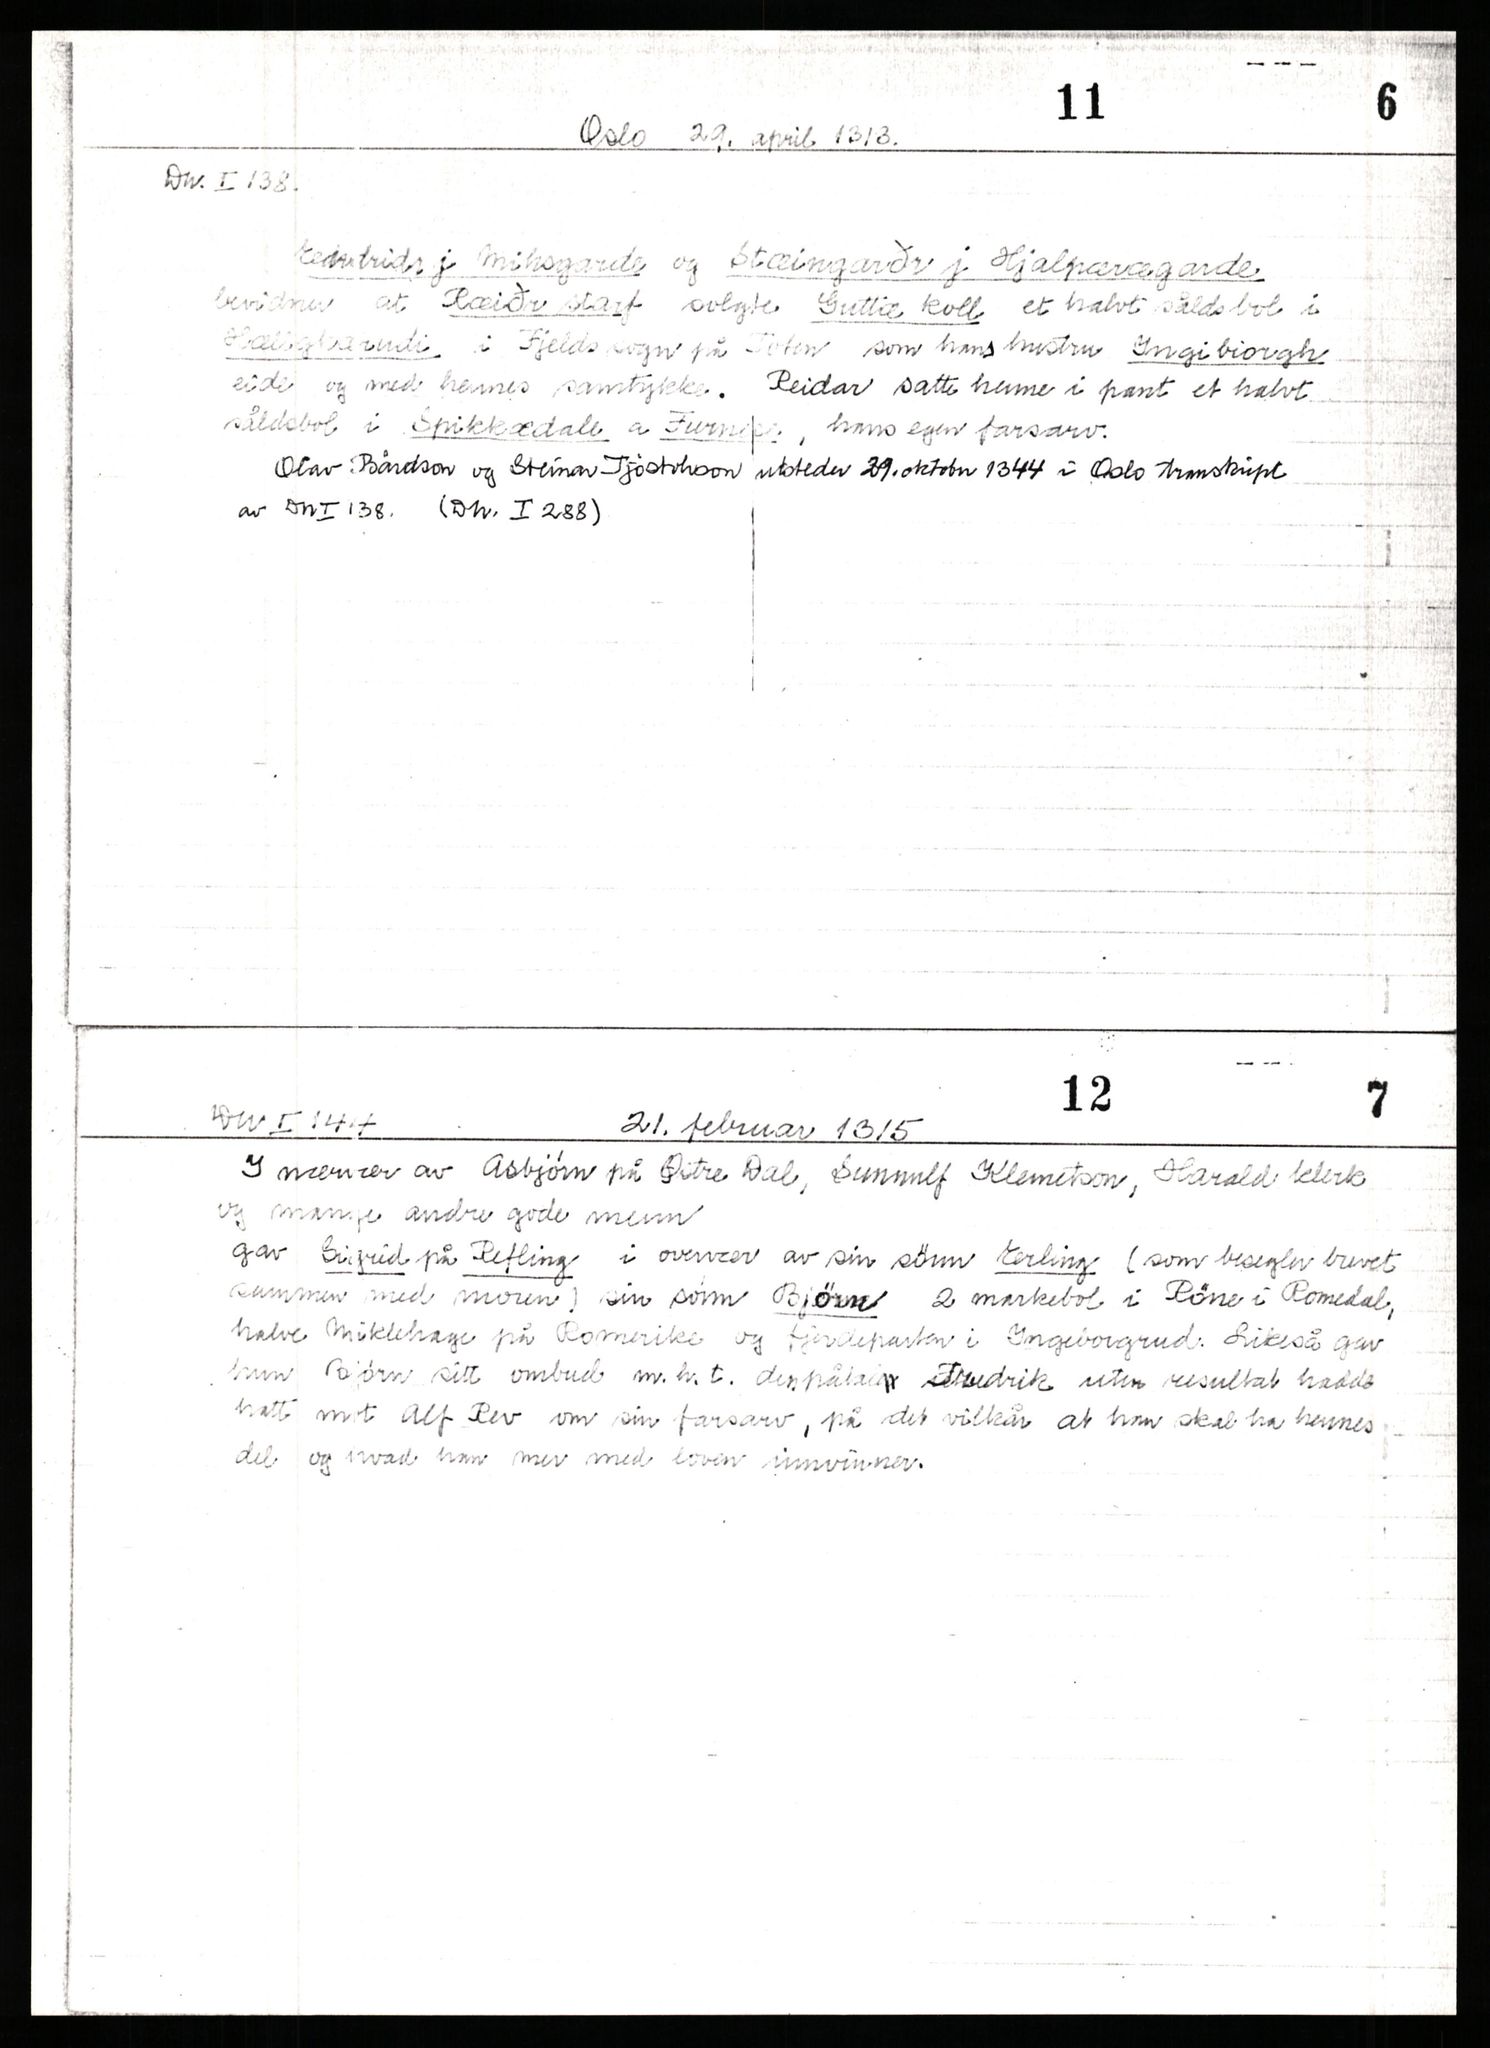 11 6
Oslo 29. april 1313.
Dn. I 138.
j Mihsgarde og Stæingarðr j Hjalpærægarde
bevidner at Ræiðr starf solgte Guttæ koll et halvt såldsbol i
i Fjelds sogn på Toten som hans hustru Ingibiorgh
eide og med hennes samtykke. Reidar satte henne i pant et halvt
såldsbol i Spikkædale a Furnes, hans egen farsarv.
Olav Bårdson og Steinar Tjöstolvson utsteder 29. oktober 1344 i Oslo transkript
av Dn I 138. (Dn. I 288)
12 7
Dn I 144 21. februar 1315
I nærvær av Asbjörn på Östre Dal, Sunnulf Klemetson, Harald klerk
og mange andre gode menn
gav Sigrid på Refling i overvær av sin sönn Erling (som besegler brevet
sammen med moren) sin sönn Björn 2 markebol i Röne i Romedal,
halve Miklehage på Romerike og fjerdeparten i Ingeborgrud. Likeså gav
hun Björn sitt ombud m.h.t. den påtale Fredrik uten resultat hadde
hatt mot Alf Rev om sin farsarv, på det vilkår at han skal ha hennes
del og hvad han mer med loven innvinner.